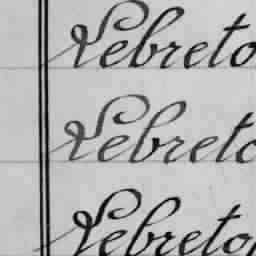 Lebreto
Lebreto
Lebreto